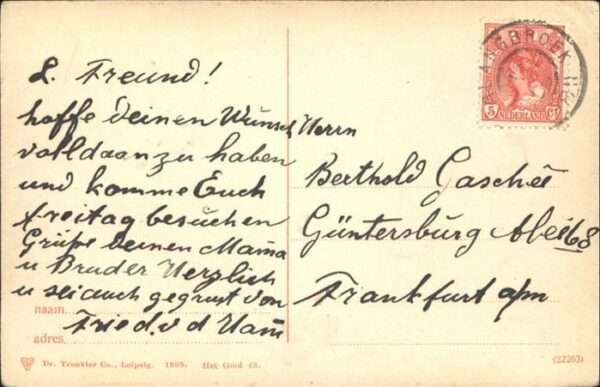 L. Freund!
hoffe deinen Wunsch
volldaan zu haben
und komme Euch
freitag besuchen
Grüße deinen Mama
u Bruder Herzlich
u sei auch gegrust von
Fried. v d Ham
naam
adres
Herrn
Berthold Gasché
Güntersburg Alleé 68
Frankfurt a/m
LANGBROEK
5 Ct
NEDERLAND
Dr. Trenkler Co., Leipzig. 1905. Hax Gmd 48.
(22263)